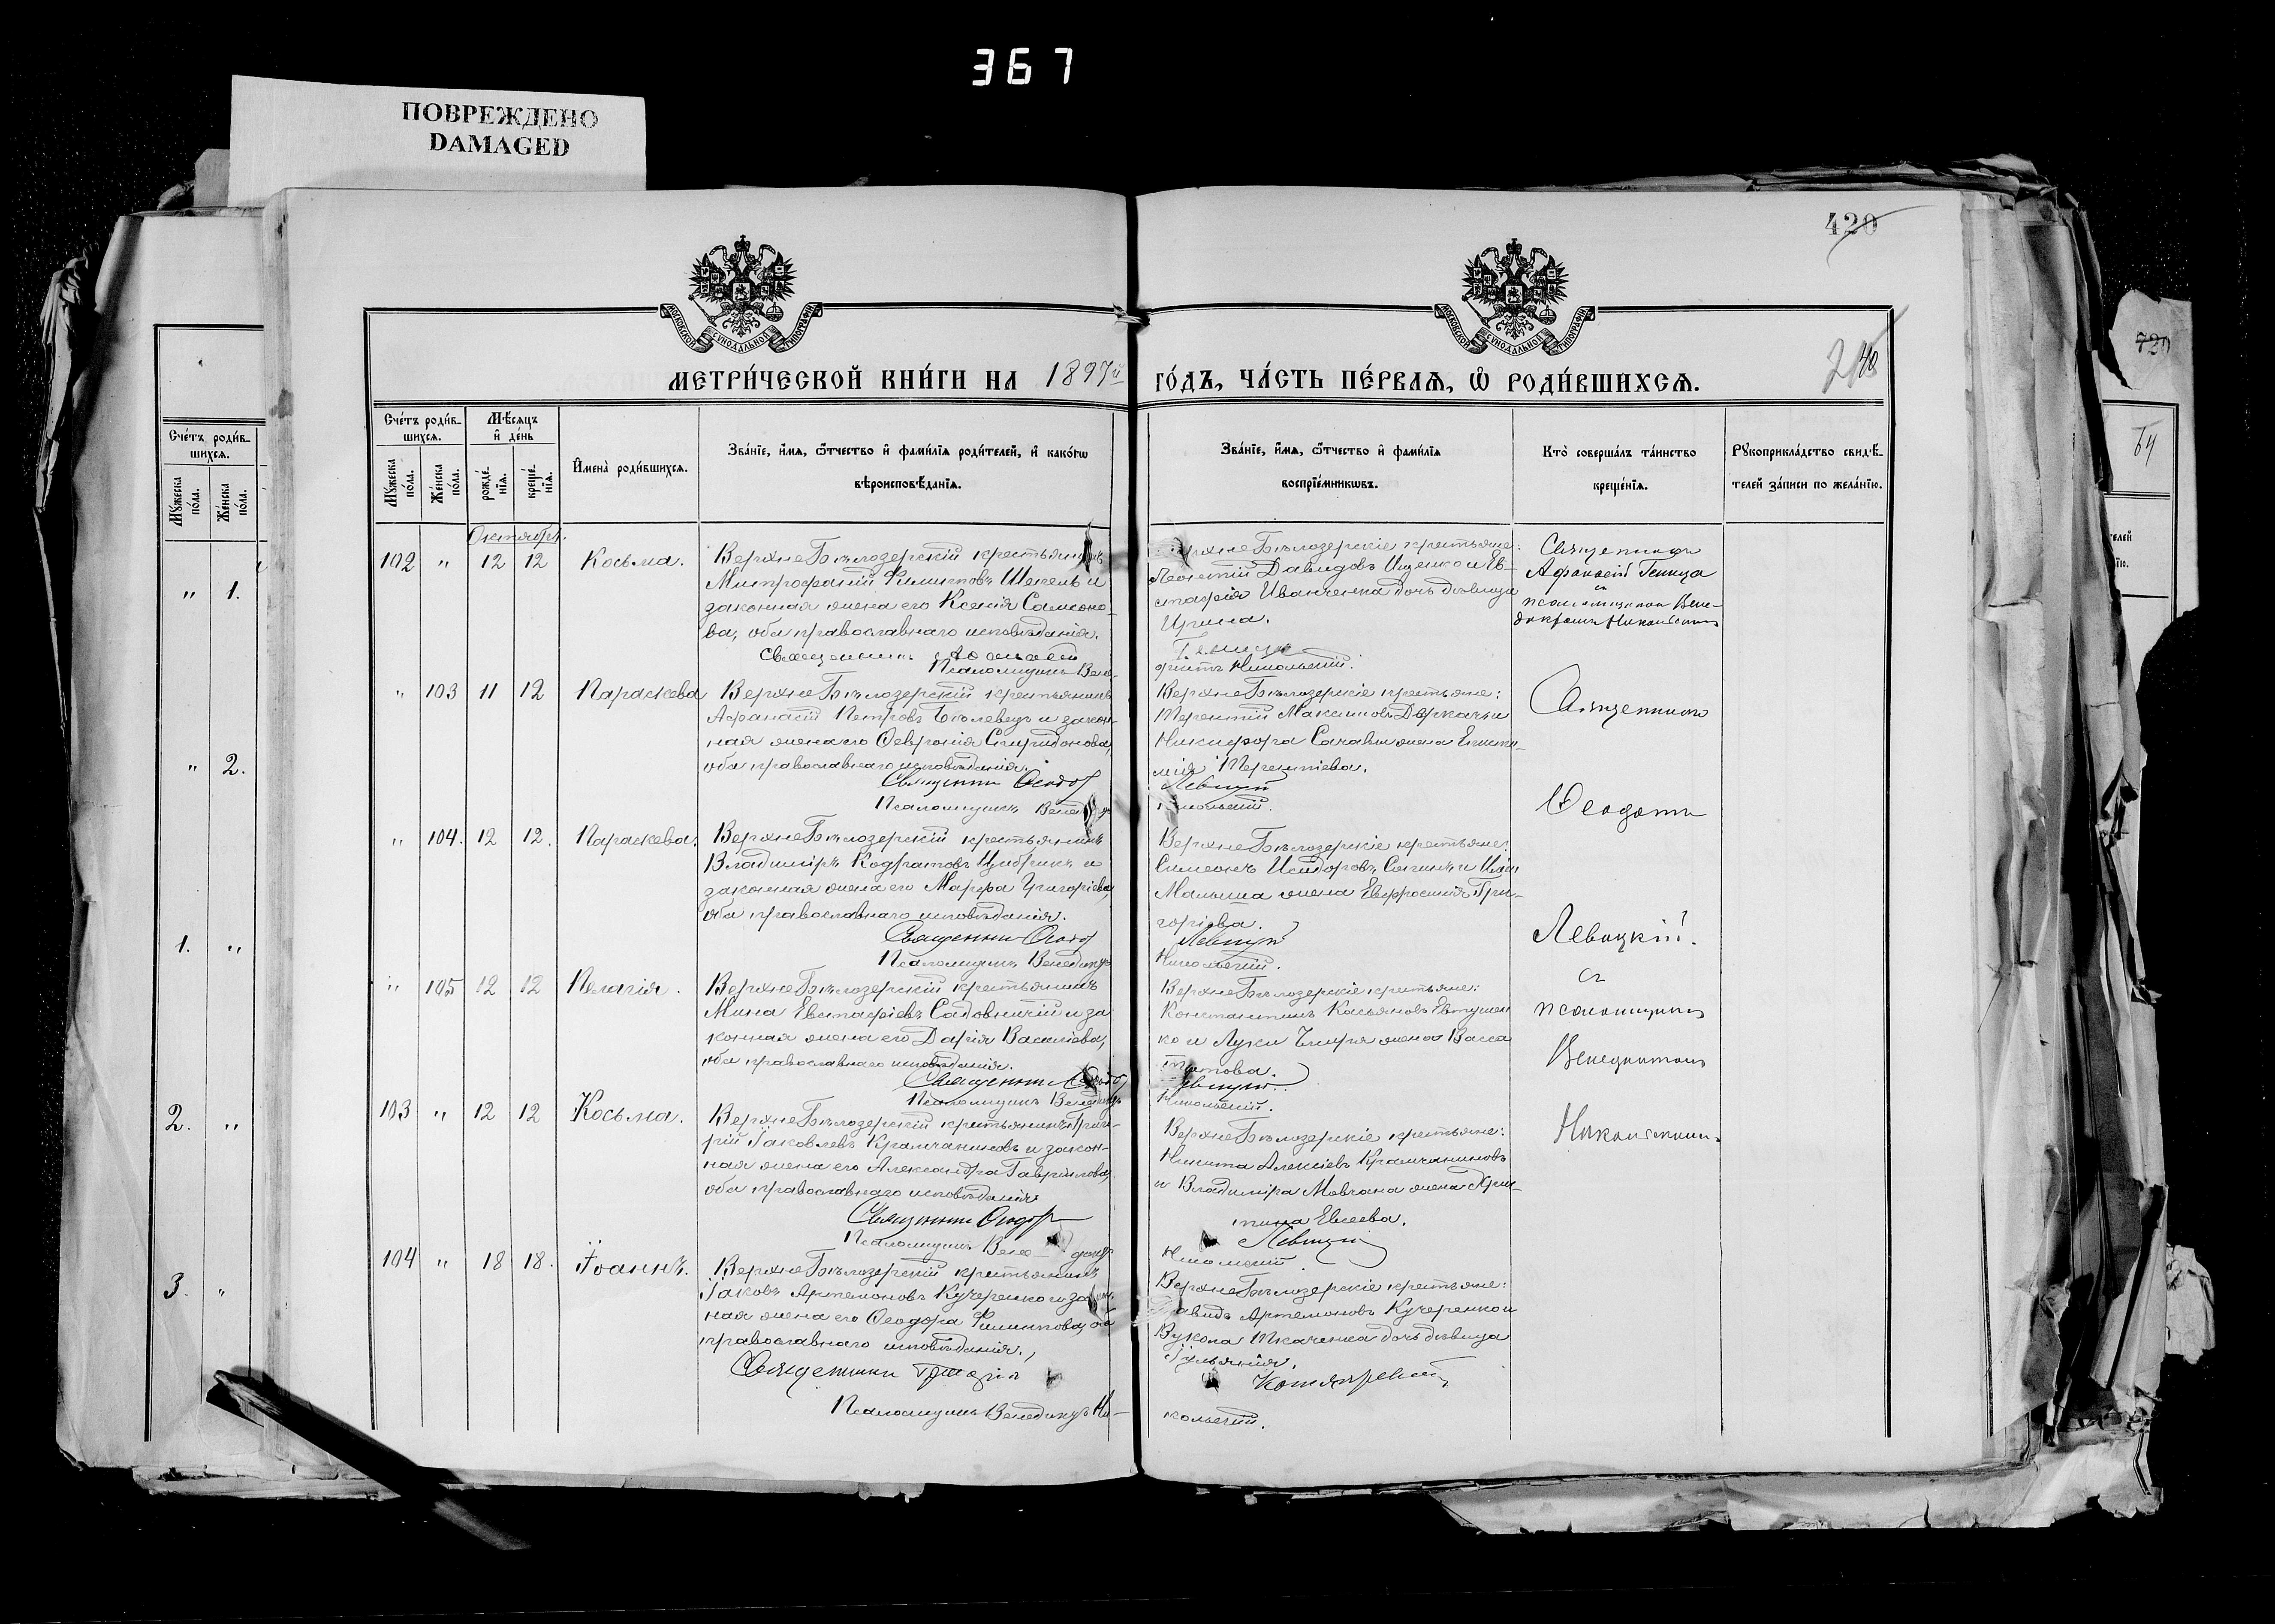 367
ПОВРЕЖДЕНО
DAMAGED
420
МЕТРИ́ЧЕСКОЙ КНИ́ГИ НА 1897й
ГО́ДЪ, ЧА́СТЬ ПЕ́РВАЯ, Ѽ РОДИ́ВШИХСЯ.
Сче́тъ роди́в-
шихся.
Мꙋ́жеска по́ла.
Же́нска по́ла.
Мѣ́сяцъ и҆ де́нь
рожде́-нїя.
креще́-нїя.
И҆мена̀ роди́вшихся.
Зва́нїе, и҆́мя, ѻ҆́тчество и҆ фами́лїя роди́телей, и҆ како́гѡ
вѣроисповѣ́данїя.
Зва́нїе, и҆́мя, ѻ҆́тчество и҆ фами́лїя
воспрїе́мникѡвъ.
Кто̀ соверша́лъ та́инство
креще́нїя.
Рꙋкоприкла́дство свидѣ́-
телей за́писи по жела́нїю.
Октябрь.
102 " 12 12 Косьма.
ВерхнеБѣлозерскій крестьянинъ
Митрофаній Филиповъ Шепель и
законная жена его Ксенія Самсоно-
ва, оба православнаго исповѣданія.
Священникъ
Псаломщикъ Вене-
ВерхнеБѣлозерскіе крестьяне:
Леонтій Давидовъ Ищенко и Ев-
стафія Иванченка дочь дѣвица
Ирина.
Гепица
диктъ Никольскій.
Священникъ
Афанасій Гепица
и
псаломщикъ Вене-
диктъ Никольскій
" 103 11 12 Параскева
ВерхнеБѣлозерскій крестьянинъ
Афанасій Петровъ Бѣлевецъ и закон-
ная жена его Февронія Спиридонова,
оба православнаго исповѣданія.
Священникъ Ѳеодот
Псаломщикъ Венедикт
ВерхнеБѣлозерскіе крестьяне:
Терентій Максимовъ Деркачъ и
Никифора жена
мія Терентіева.
Левицкій
Никольскій.
Священникъ
Ѳеодотъ
" 104. 12 12. Параскева.
ВерхнеБѣлозерскій крестьянинъ
Владиміръ Кодратовъ Цибрикъ и
законная жена его Марфа Григоріева,
оба православнаго исповѣданія.
Священникъ Ѳеодот
Псаломщикъ Венедиктъ
ВерхнеБѣлозерскіе крестьяне:
Симеонъ Исидоровъ
Малыша жена Евфросинія Гри-
горіева.
Левицкій
Никольскій.
Левицкій.
съ
" 105 12 12 Пелагія.
ВерхнеБѣлозерскій крестьянинъ
Мина Евстафіевъ Садовничій и за
конная жена его Дарія Василіева,
оба православнаго исповѣданія.
Священникъ Ѳеодот
Псаломщикъ Венедиктъ
ВерхнеБѣлозерскіе крестьяне:
Константинъ Касьяновъ Евтушен
ко и Луки жена Васса
Титова.
Левицкій.
Никольскій.
псаломщикомъ
Венедиктомъ
103 " 12 12 Косьма.
ВерхнеБѣлозерскій крестьянинъ Григо-
рій Іаковлевъ Крамчаниновъ и закон-
ная жена его Александра Гавріилова,
оба православнаго исповѣданія
Священникъ Ѳеодот
Псаломщикъ Вене
ВерхнеБѣлозерскіе крестьяне:
Никита Алексіевъ Крамчаниновъ
и Владиміра Мовчана жена Хри-
стина Евсеева.
Левицкій
Никольскій.
Никольскимъ.
104 " 18 18. Іоаннъ.
ВерхнеБѣлозерскій крестьянинъ
Іаковъ Артемоновъ Кучеренко и закон-
ная жена его Ѳеодора Филиппова, оба
православнаго исповѣданія.
Священникъ
Псаломщикъ Венедиктъ Ни-
ВерхнеБѣлозерскіе крестьяне:
Давидъ Артемоновъ Кучеренко и
Вукола Ткаченка дочь дѣвица
Іульянія.
Котляревскій
кольскій.
Сче́тъ роди́в-
шихся.
Мꙋ́жеска по́ла.
Же́нска по́ла.
" 1.
" 2.
1. "
2. "
3. "